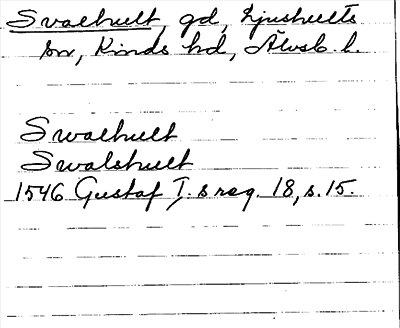 Svalhult, gd, Ljushults
sn, Kinds hd, Älvsb. l.
Swalhult
Swalshult
1546 Gustaf I.s reg. 18, s. 15.